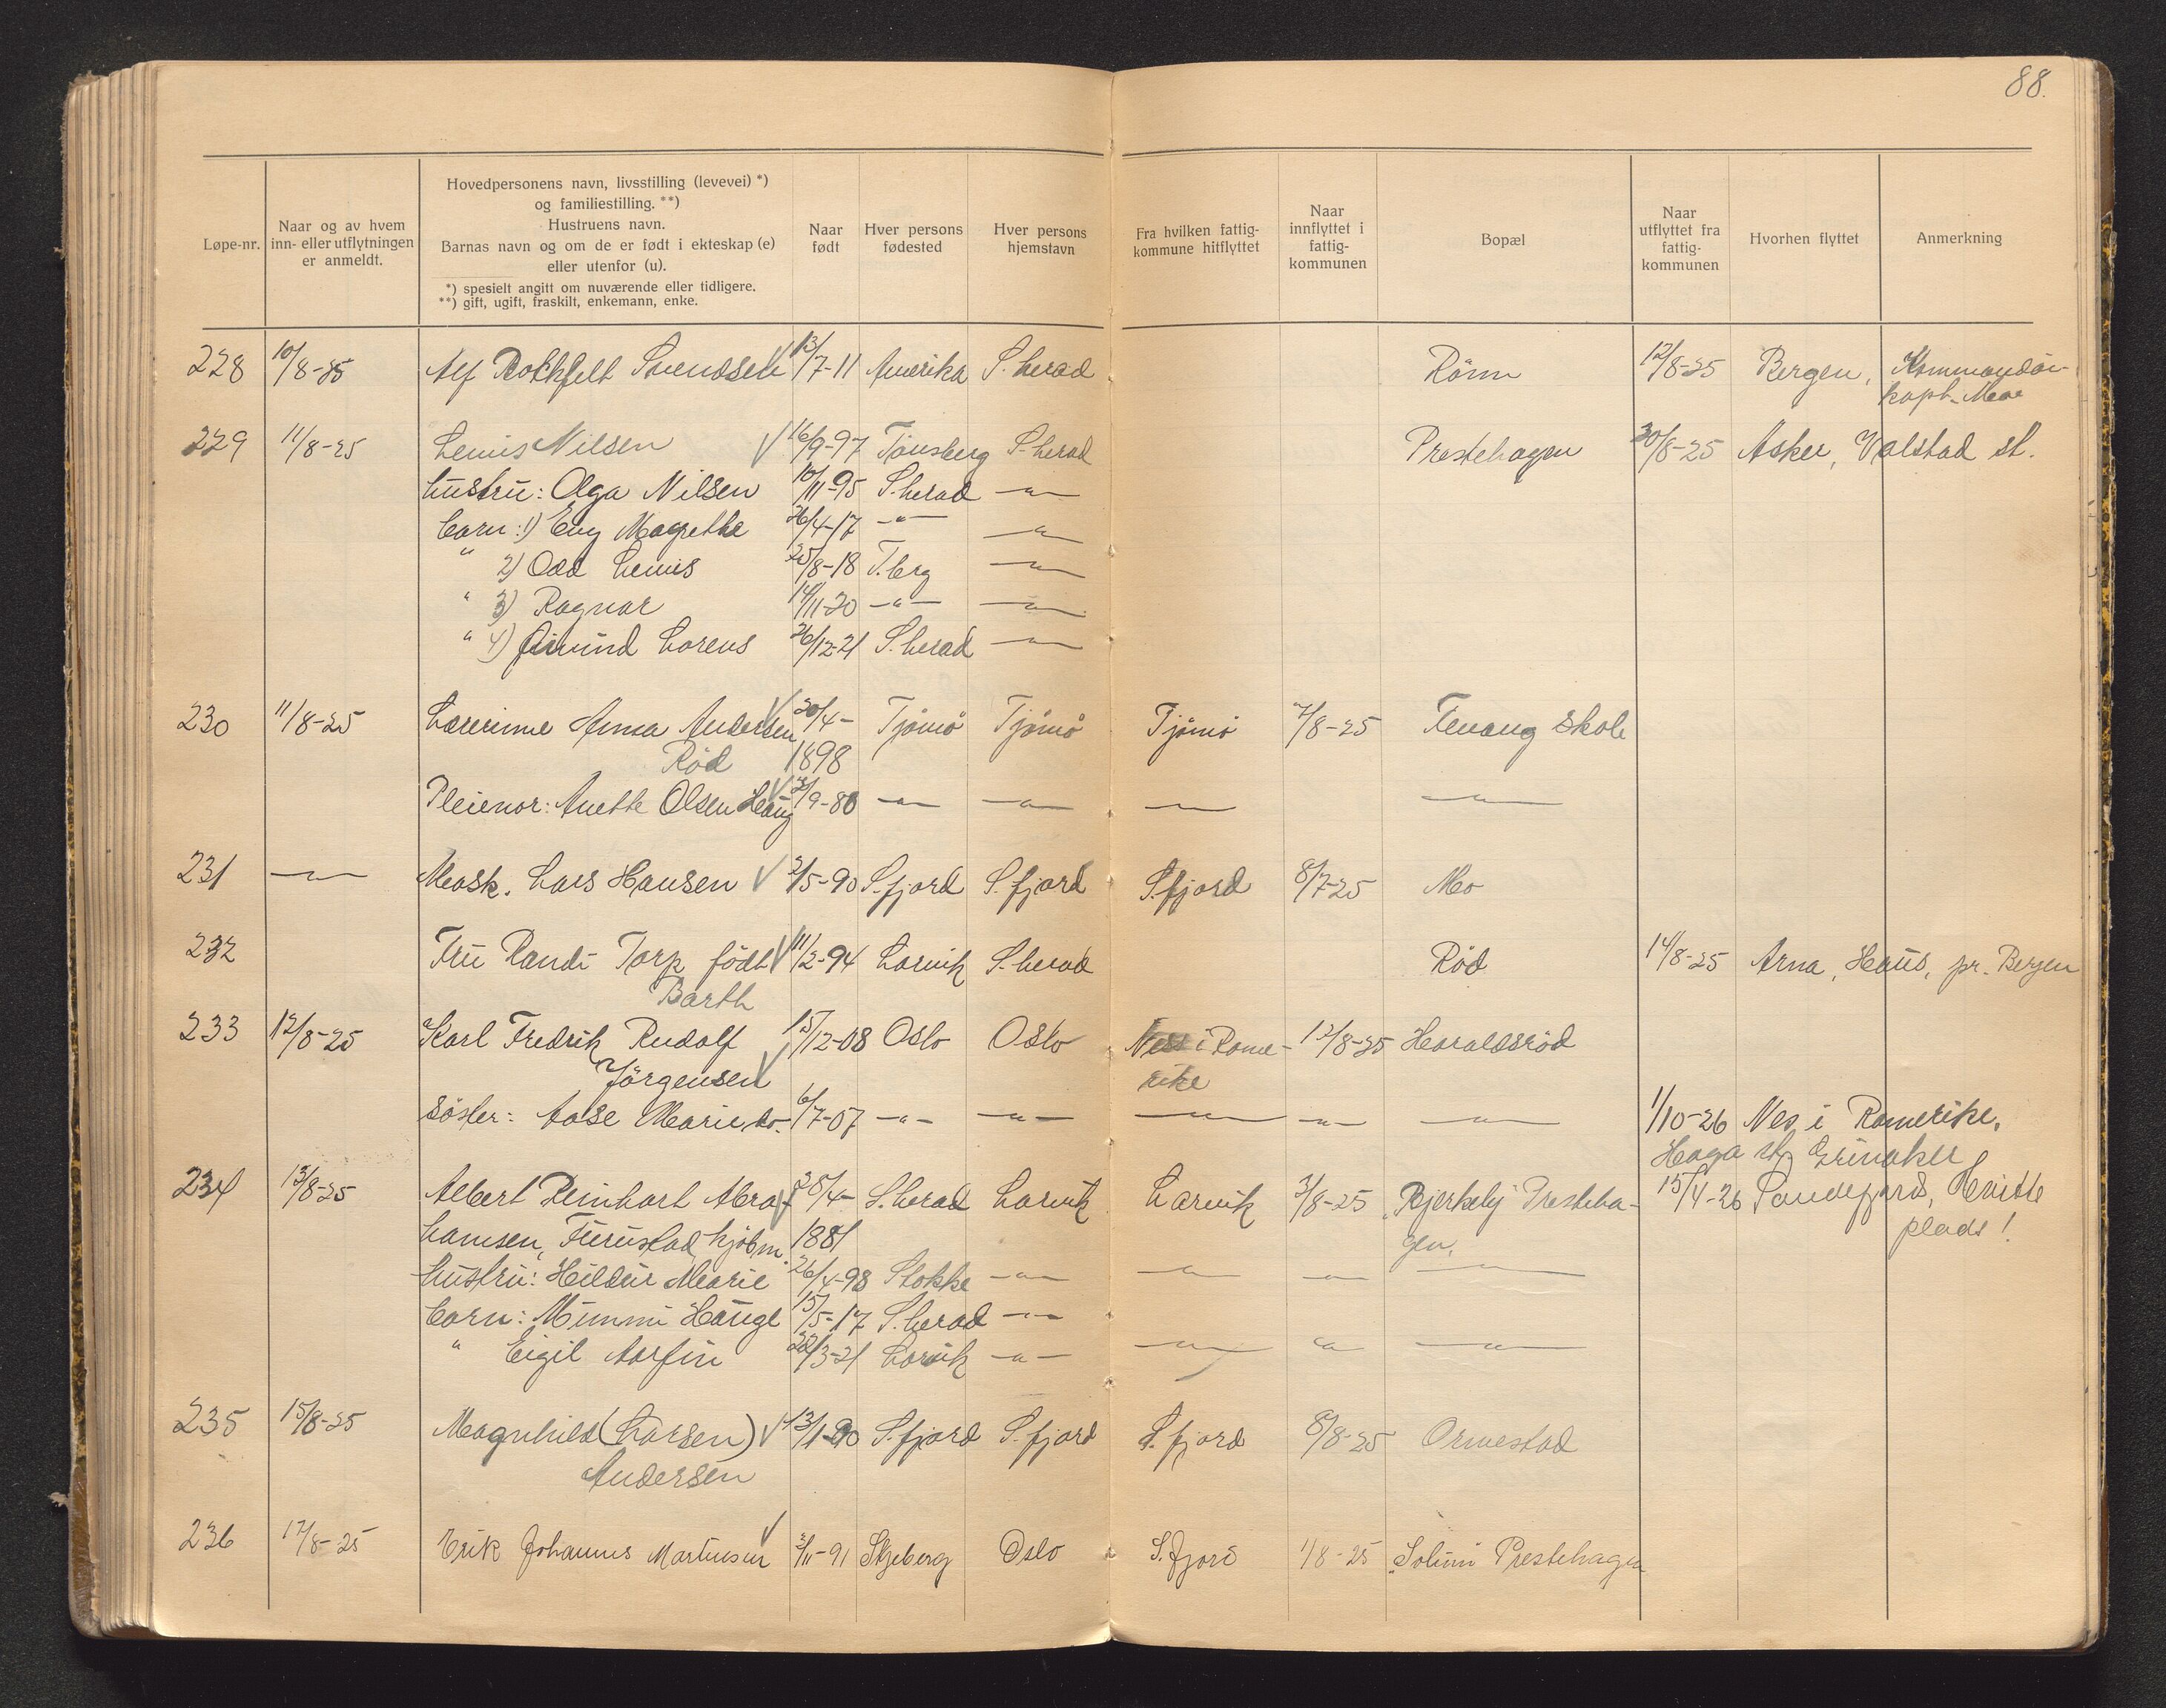 88.
Løpe-nr.
Naar og av hvem
inn- eller utflytningen
er anmeldt.
Hovedpersonens navn, livsstilling (levevei) *)
og familiestilling. **)
Hustruens navn.
Barnas navn og om de er født i ekteskap (e)
eller utenfor (u).
*) spesielt angitt om nuværende eller tidligere.
**) gift, ugift, fraskilt, enkemann, enke.
Naar
født
Hver persons
fødested
Hver persons
hjemstavn
Fra hvilken fattig-
kommune hitflyttet
Naar
innflyttet i
fattig-
kommunen
Bopæl
Naar
utflyttet fra
fattig-
kommunen
Hvorhen flyttet
Anmerkning
228 10/8-25 Alf Svendsen 13/7-11 Amerika S.herad Rönn 12/8-25 Bergen, Kommandör-
kapt.
229 11/8-25 Nilsen 16/9-97 Tönsberg S.herad Prestehagen 30/8-25 Asker, Valstad st.
hustru: Olga Nilsen 10/11-95 S.herad —"—
barn: 1) Magrethe 26/4-17 —"— —"—
" 2) Odd 20/8-18 T.berg —"—
" 3) Ragnar 14/11-20 —"— —"—
" 4) Öivind Lorens 26/12-21 S.herad —"—
230 11/8-25 Lærerinne Anna Andersen 20/4- Tjömö Tjömö Tjömö 7/8-25 Fevang skole
Röd 1898
Pleiemor: Anette Olsen Haug /9-80 —"— —"— —"— —"—
231 —"— Mask. Lars Hansen 2/5-90 S.fjord S.fjord S.fjord 8/7-25 Mo
232 Fru Randi Torp födt 11/2-94 Larvik S.herad Röd 14/8-25 Arna, Haus, pr. Bergen
Barth
233 12/8-25 Karl Fredrik Rudolf 15/12-08 Oslo Oslo Nes i Rome- 12/8-25 Haraldsröd
Jörgensen rike
Söster: Aase Marie do. 6/7-07 —"— —"— —"— —"— —"— 1/10-26 Nes i Romerike,
Haga st.
234 13/8-25 Albert Reinhart Abra- 25/4- S.herad Larvik Larvik 3/8-25 "Bjerkely" Presteha- 15/4-26 Sandefjord, Hvitte
hamsen, Furustad, kjöbm. 1881 gen. plads!
hustru: Hildur Marie 26/4-98 Stokke —"— —"— —"— —"—
barn: Mimmi Hauge 15/5-17 S.herad —"—
" Eigil Arfin 22/3-21 Larvik —"— —"— " —"—
235 15/8-25 Magnhild (Larsen) 13/1-90 S.fjord S.fjord S.fjord 8/8-25 Ormestad
Andersen
236 17/8-25 Erik Johannes Martinsen /11-91 Skjeberg Oslo S.fjord 1/8-25 Prestehagen